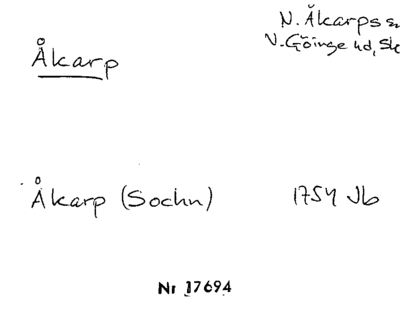 Åkarp
N. Åkarps sn
V. Göinge hd, Sk
Åkarp (Sochn)
1754 Jb
Nr 17694